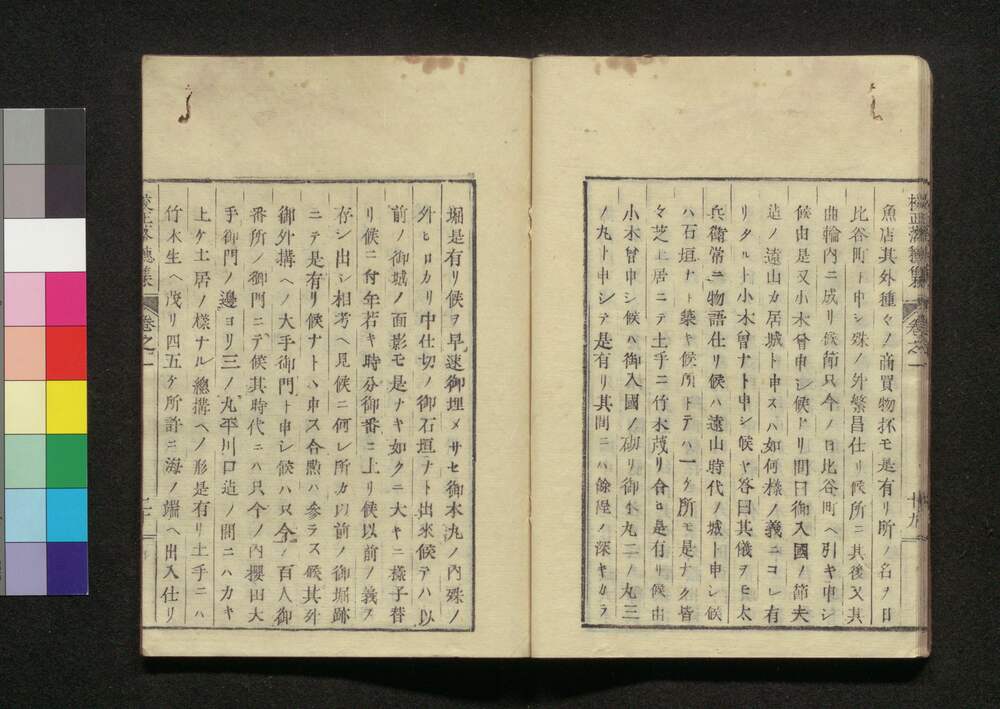 魚店其外種々ノ商買物抔モ是有リ所ノ名ヲ日
比谷町ト申シ殊ノ外繁昌仕リ候所ニ其後又其
曲輪内ニ成リ候節只今ノ日比谷町ヘ引キ申シ
候由是又小木曾申シ候ナリ問曰御入國ノ節夫
迠ノ遠山カ居城ト申スハ如何樣ノ義ニコレ有
リタルト小木曾ナト申シ候ヤ答曰其儀ヲモ太
兵衛常ニ物語仕リ候ハ遠山時代ノ城ト申シ候
ハ石垣ナト築キ候所トテハ一ケ所モ是ナク皆
々芝土居ニテ土手ニ竹木茂リ合ヒ是有リ候由
小木曾申シ候ハ御入國ノ砌リ御本丸二ノ丸三
ノ丸ト申シテ是有リ其間ニハ餘程ノ深キカラ
卷之一
十九
堀是有リ候ヲ早速御埋メサセ御本丸ノ内殊ノ
外ヒロカリ中仕切ノ御石垣ナト出來候テハ以
前ノ御城ノ面影モ是ナキ如クニ大キニ樣子替
リ候ニ付年若キ時分御番ニ上リ候以前ノ義ヲ
存シ出シ相考ヘ見候ニ何レ所カ以前ノ御堀跡
ニテ是有リ候ナトヽ申ス合點ハ參ラス候其外
御外搆ヘノ大手御門ト申シ候ハ只今ノ百人御
番所ノ御門ニテ候其時代ニハ只今ノ内櫻田大
手御門ノ邊ヨリ三ノ丸平川口迠ノ間ニハカキ
上ケ土居ノ樣ナル總搆ヘノ形是有リ土手ニハ
竹木生ヘ茂リ四五ケ所許ニ海ノ端ヘ出入仕リ
卷之一